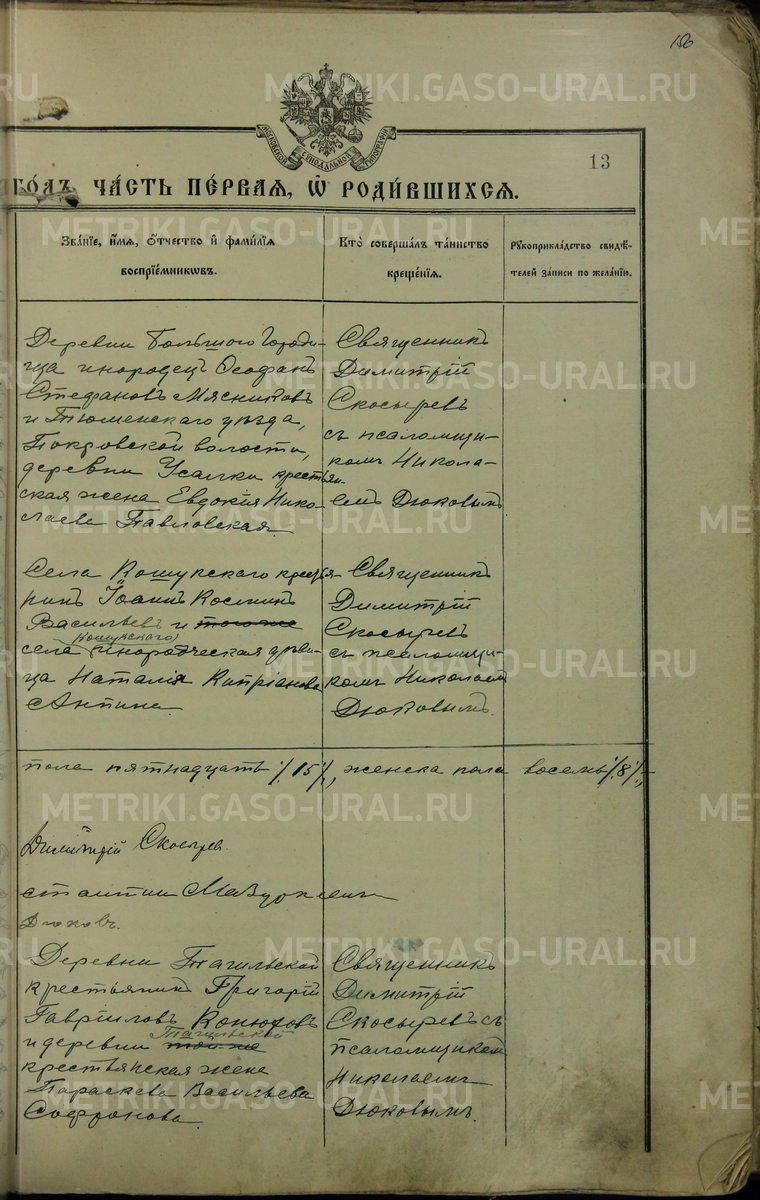 156
METRIKI.GASO-URAL.RU
МОСКОВСКОЙ СѴНОДАЛЬНОЙ ТИПОГРАФІИ
13
ГО́ДЪ ЧА́СТЬ ПЕ́РВАЯ, Ѡ҆ РОДИ́ВШИХСЯ.
Зва́нїе, и҆́мя, ѻ҆́тчество и҆ фами́лїя
воспрїе́мникѡвъ.
Кто̀ соверша́лъ та́инство
креще́нїя.
Рꙋкоприкла́дство свидѣ́-
телей за́писи по жела́нїю.
Деревни Большого Городи-
ща инородецъ Ѳеофанъ
Стефановъ Мясниковъ
и Тюменскаго уѣзда,
Покровской волости,
деревни Усалки крестьян-
ская жена Евдокія Нико-
лаева Павловская.
Священникъ
Димитрій
Скосыревъ
съ псаломщи-
комъ Никола-
емъ Дюковымъ
Села Кошукскаго крестья-
нинъ Іоаннъ Косминъ
Васильевъ и тогоже
Кошукскаго
села инородческая дѣви-
ца Наталія Кипріанова
Антина.
Священникъ
Димитрій
Скосыревъ
съ псаломщи-
комъ Николаемъ
Дюковымъ.
METRIKI.GASO-URAL.RU
пола пятнадцать /15/, женска пола восемь /8/,
METRIKI.GASO-URAL.RU
Димитрій Скосырев.
Дюковъ.
Деревни Тагильской
крестьянинъ Григорій
Гавріиловъ Конюховъ
Тагильской
и деревни той-же
крестьянская жена
Параскева Васильева
Софронова.
Священникъ
Димитрій
Скосыревъ съ
псаломщикомъ
Николаемъ
Дюковымъ.
METRIKI.GASO-URAL.RU